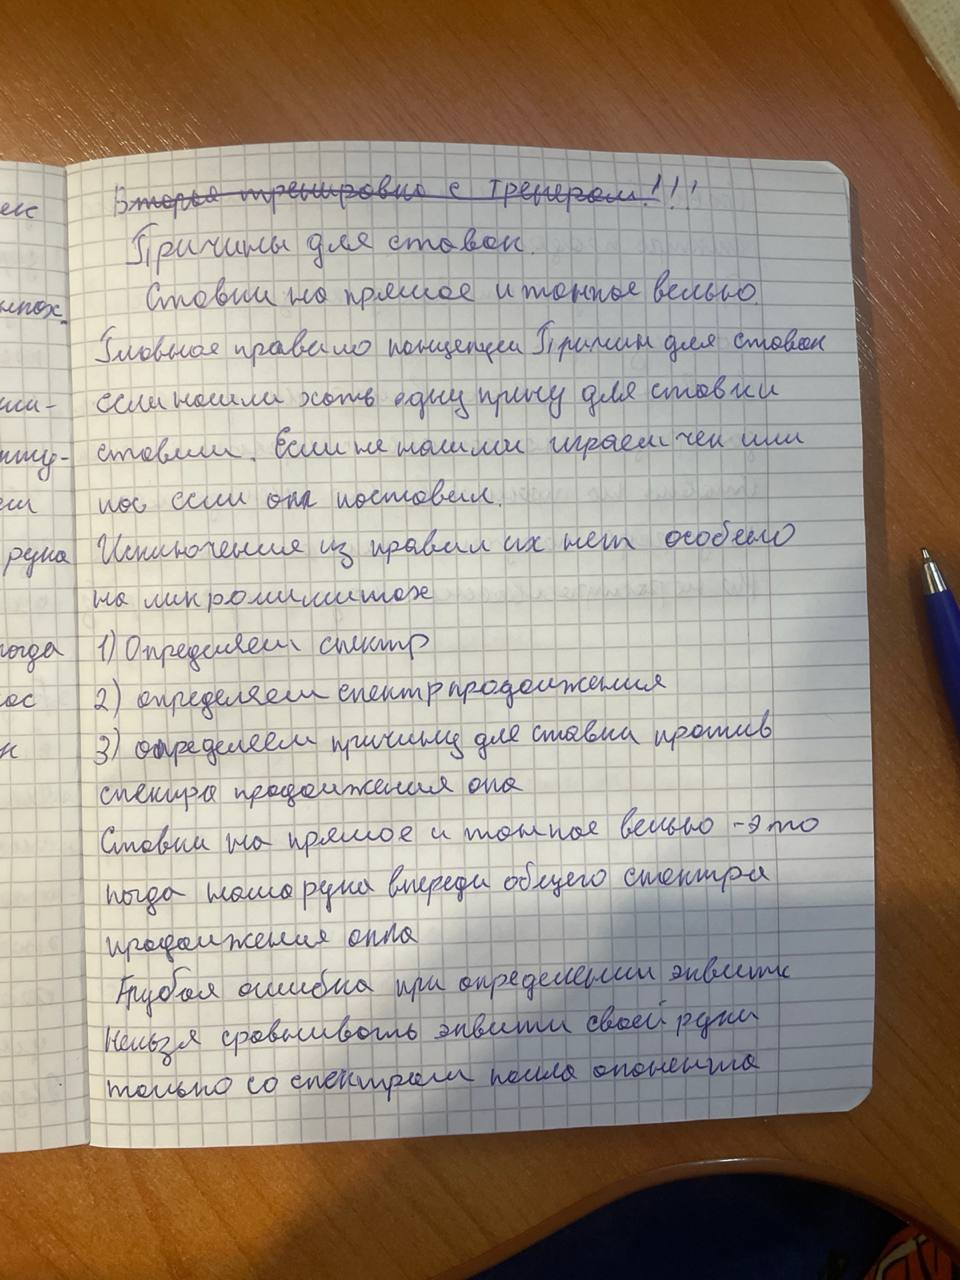 Вторая тренировка с тренером!!!
Причины для ставок.
Ставки на прямое и тонкое велью.
Главное правило концепции Причин для ставок
если нашли хоть одну прину для ставки
ставим. Если не нашли играем чек или
пас если опп поставил.
Исключения из правил их нет особено
на микролимитах
1) Определяем спектр
2) определяем спектр продолжения
3) определяем причину для ставки против
спектра продолжения опа
Ставки на прямое и тонкое велью - это
когда наша рука впереди общего спектра
продолжения оппа
Грубая ошибка при определении эквити
Нельзя сравнивать эквити своей руки
только со спектром колла опонента
елс
ппох.
ши-
пту-
ем
рука
когда
рас
к